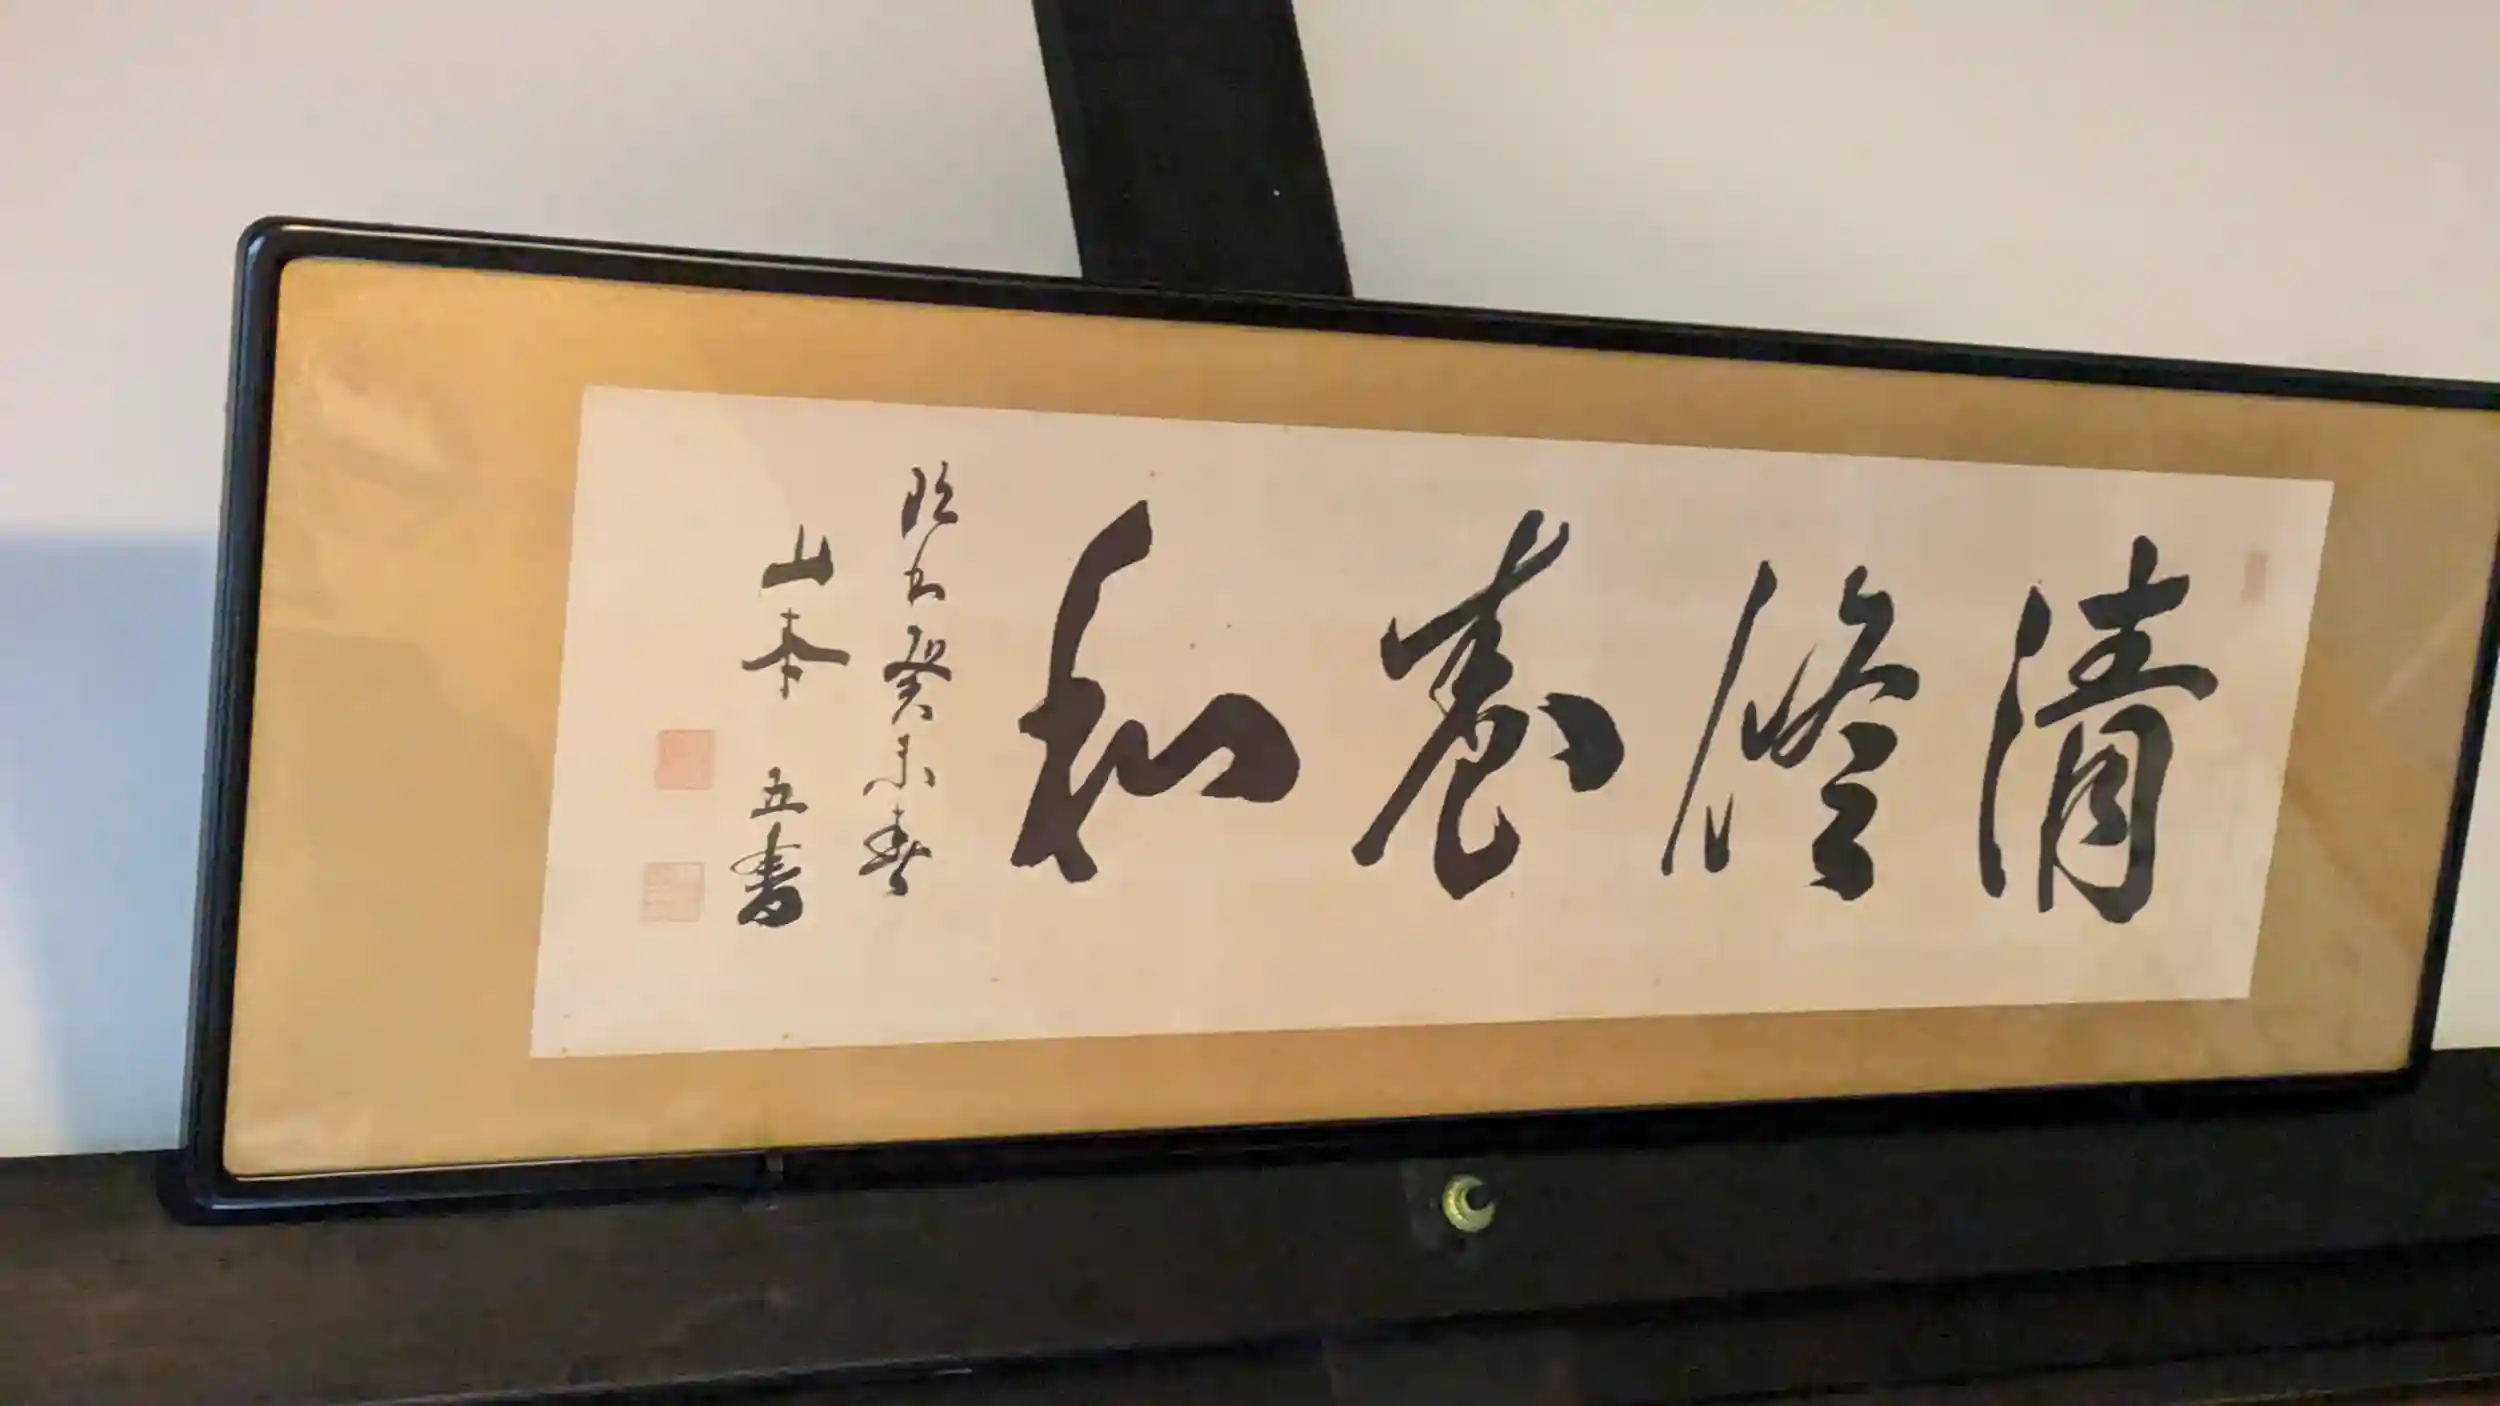 清修養和
昭和癸未春
山本五書